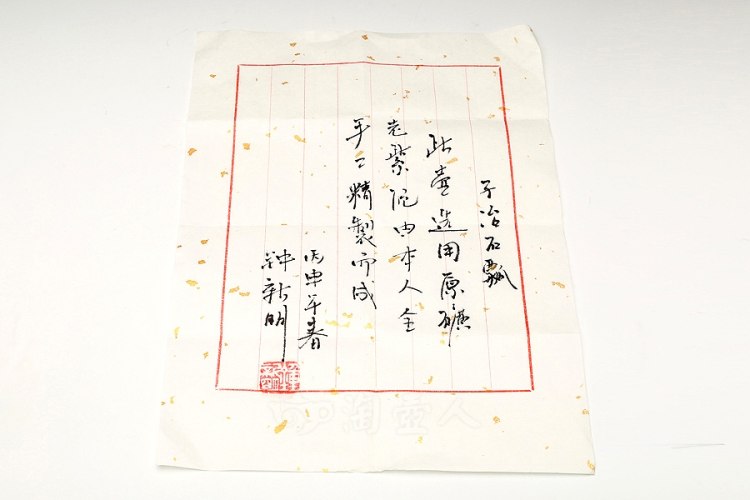 子冶石瓢
此壺选用原礦
老紫泥由本人全
手工精製而成
丙申年春
钟新明
淘壶人